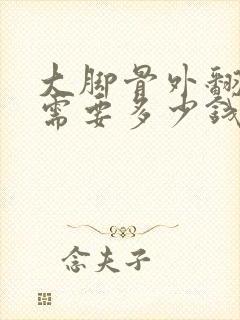 大脚骨外翻
需要多少钱
念夫子